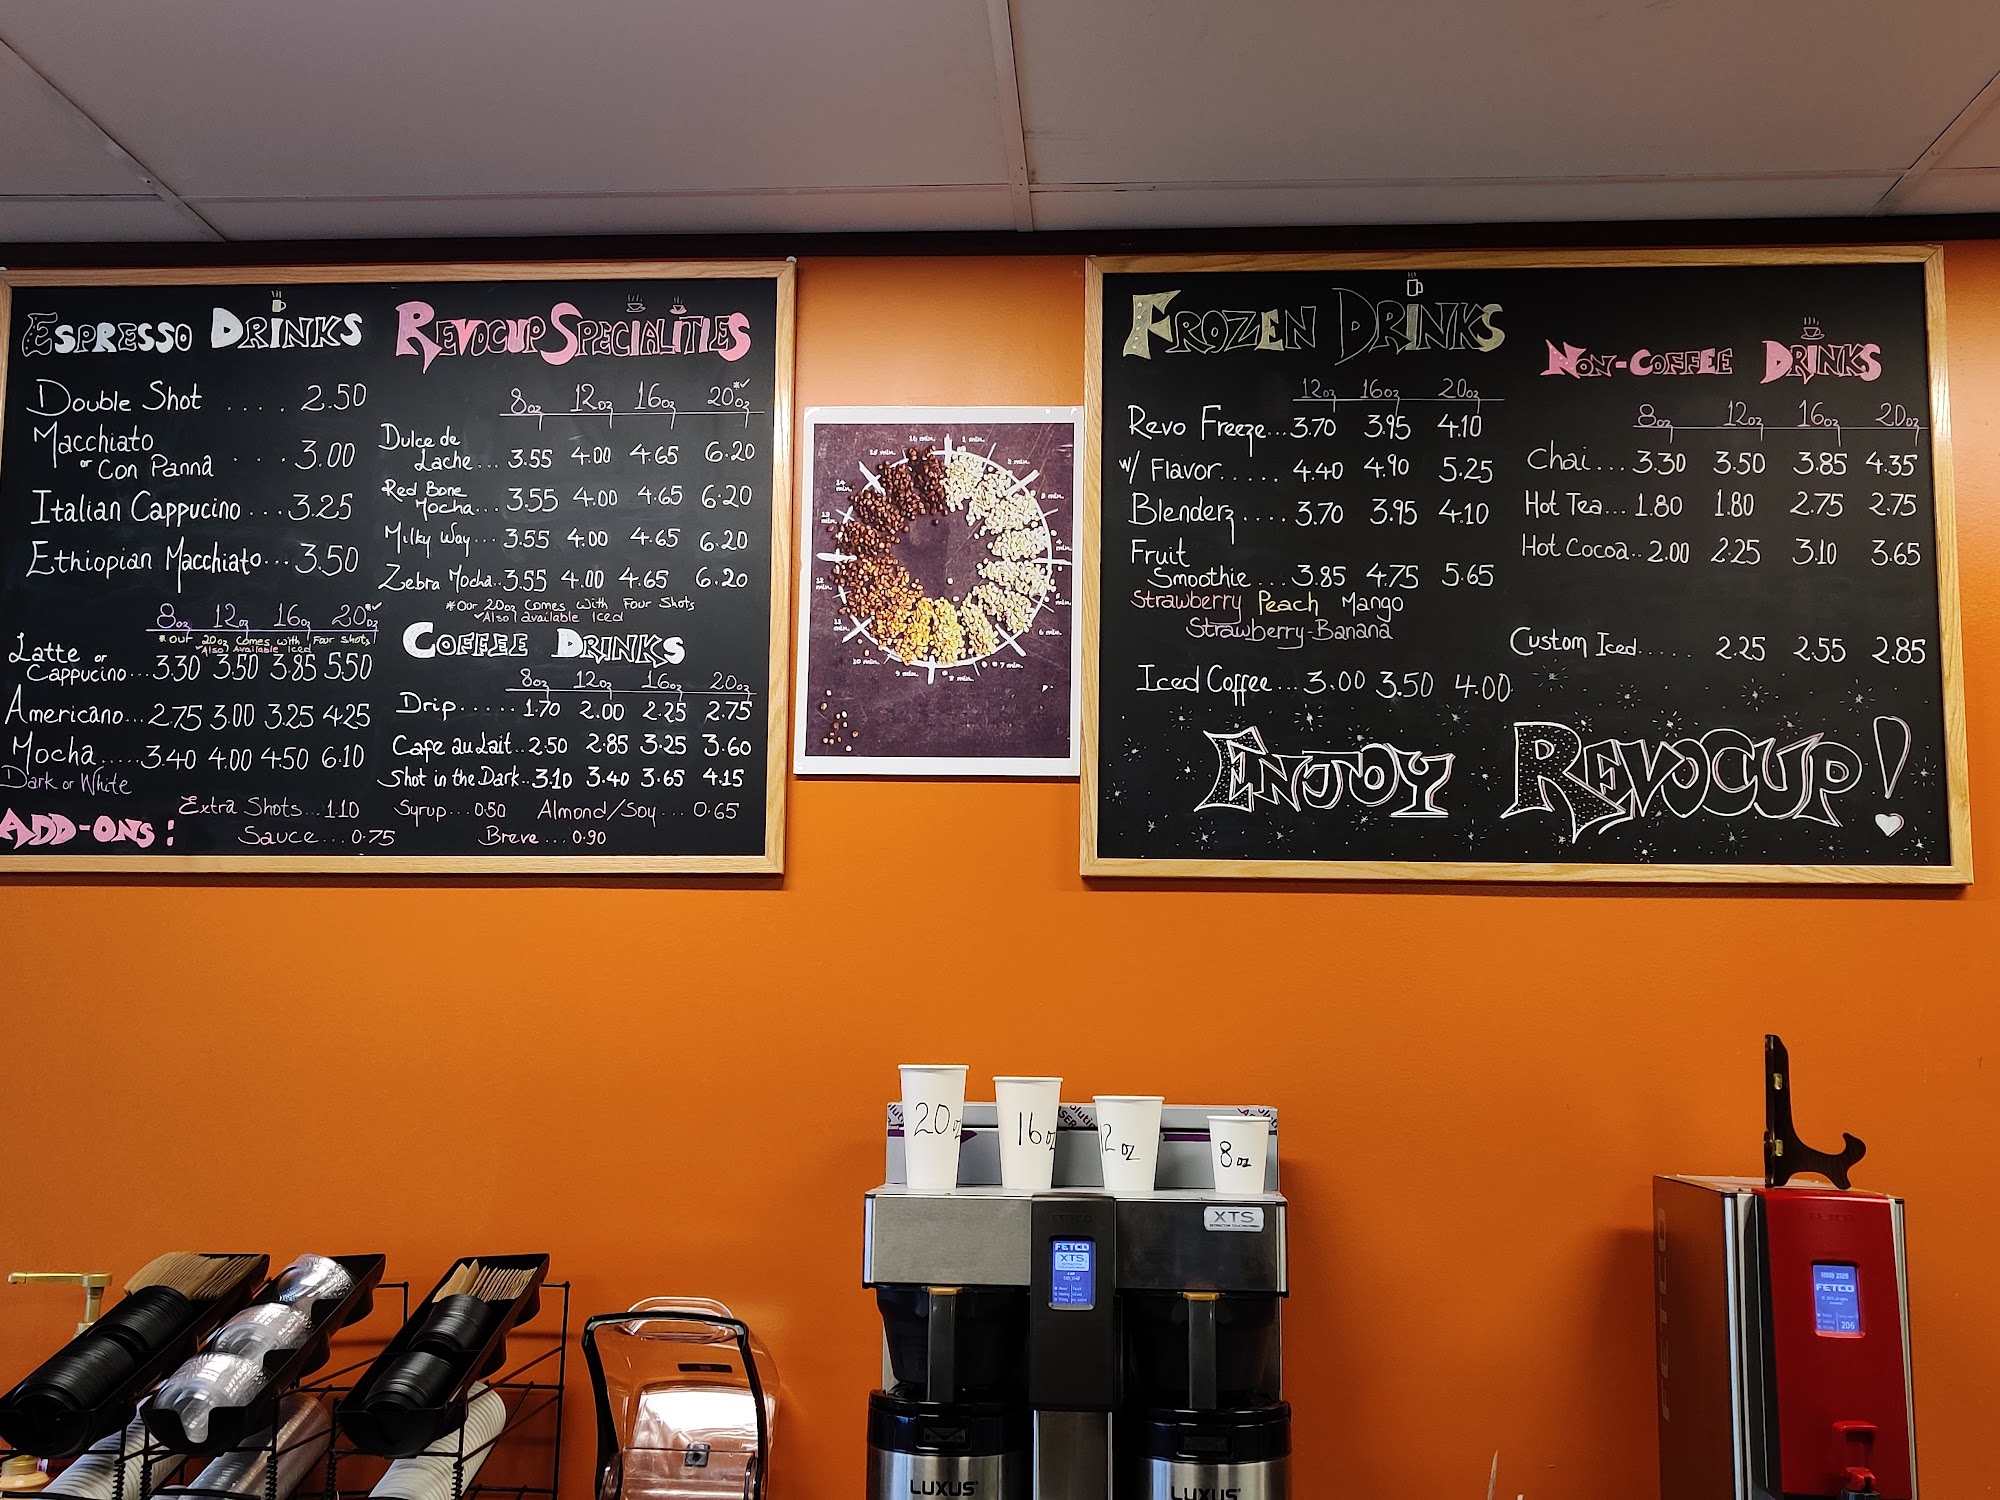 Espresso Drinks
Double Shot .... 2.50
Macchiato
or Con Panna ....3.00
Italian Cappucino ...3.25
Ethiopian Macchiato...3.50
8oz 12oz 16oz 20oz*✓
*Our 20oz Comes with Four Shots
✓Also Available Iced
Latte or
Cappucino...3.30 3.50 3.85 5.50
Americano...2.75 3.00 3.25 4.25
Mocha.....3.40 4.00 4.50 6.10
Dark or White
Revocup Specialities
8oz 12oz 16oz 20oz*✓
Dulce de
Lache... 3.55 4.00 4.65 6.20
Red Bone
Mocha... 3.55 4.00 4.65 6.20
Milky Way... 3.55 4.00 4.65 6.20
Zebra Mocha..3.55 4.00 4.65 6.20
*Our 20oz Comes With Four Shots
✓Also available Iced
Coffee Drinks
8oz 12oz 16oz 20oz
Drip...... 1.70 2.00 2.25 2.75
Cafe au Lait..2.50 2.85 3.25 3.60
Shot in the Dark..3.10 3.40 3.65 4.15
Add-Ons:
Extra Shots...1.10 Syrup...0.50 Almond/Soy... 0.65
Sauce...0.75 Breve...0.90
14 min. 1 min.
2 min.
3 min.
6 min.
7 min.
8 min.
9 min.
10 min.
11 min.
12 min.
13 min.
14 min.
15 min.
Frozen Drinks
12oz 16oz 20oz
Revo Freeze...3.70 3.95 4.10
w/ Flavor..... 4.40 4.90 5.25
Blenderz.... 3.70 3.95 4.10
Fruit
Smoothie ...3.85 4.75 5.65
Strawberry Peach Mango
Strawberry-Banana
Iced Coffee...3.00 3.50 4.00
Non-Coffee Drinks
8oz 12oz 16oz 20oz
Chai...3.30 3.50 3.85 4.35
Hot Tea...1.80 1.80 2.75 2.75
Hot Cocoa..2.00 2.25 3.10 3.65
Custom Iced..... 2.25 2.55 2.85
Enjoy Revocup!
20oz
16oz
12oz
8oz
XTS
FETCO
XTS
LUXUS
LUXUS
FETCO
FETCO
206